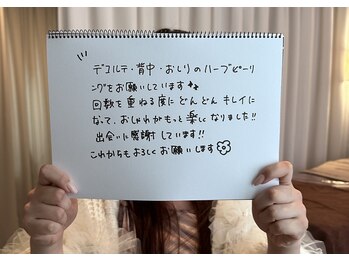 デコルテ・背中・おしりのハーブピーリ
ングをお願いしています
回数を重ねる度にどんどんキレイに
なって、おしゃれがもっと楽しくなりました!!
出会いに感謝しています!!
これからもよろしくお願いします